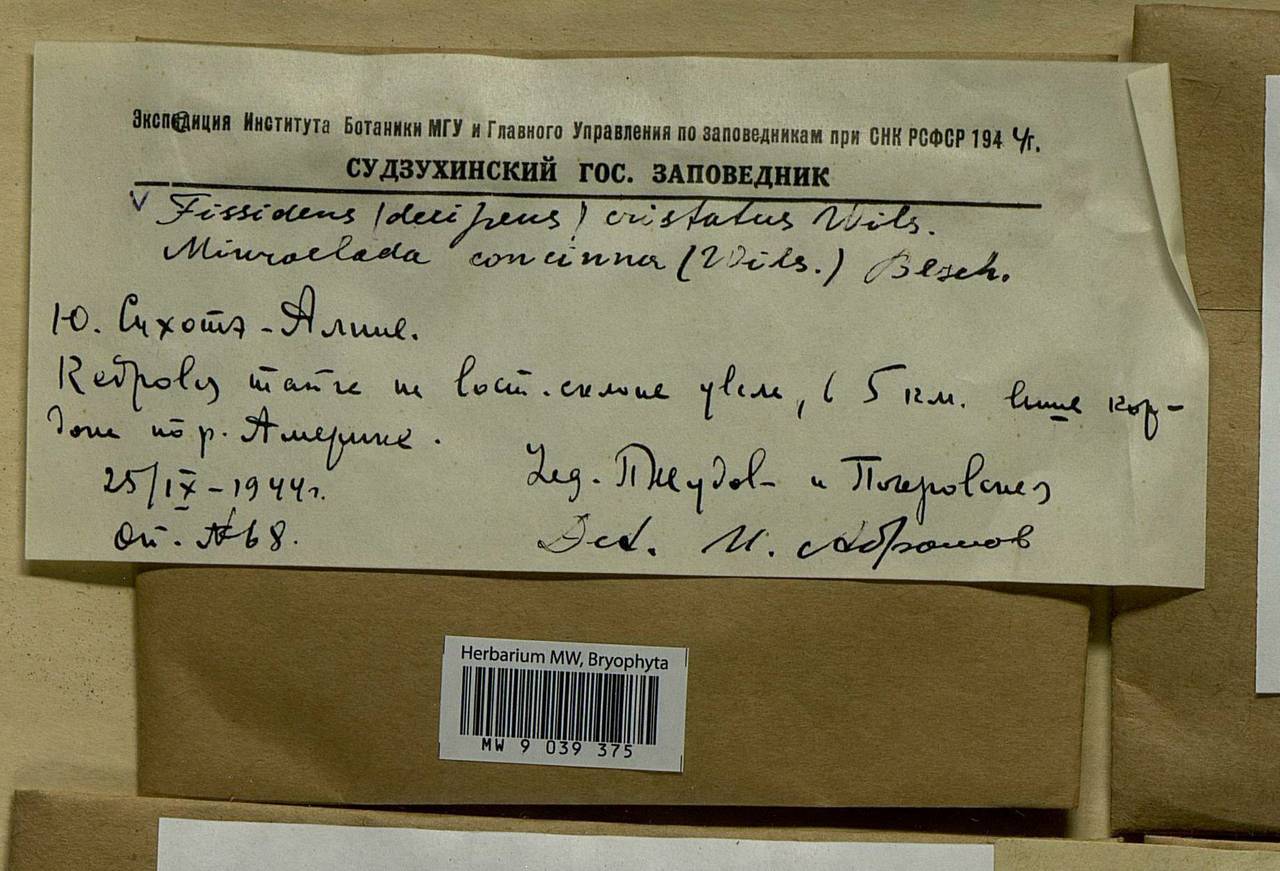 Экспедиция Института Ботаники МГУ и Главного Управления по заповедникам при СНК РСФСР 1944г.
СУДЗУХИНСКИЙ ГОС. ЗАПОВЕДНИК
v Fissidens (decipiens) cristatus Wils.
Miuroclada concinna (Wils.) Besch.
Ю. Сихотэ-Алинь.
Кедровая тайга на вост. склоне увала, в 5 км. выше кор-
дона по р. Америке.
25/IX-1944г.
Оп. №68.
Leg. и Покровская
Det. И. Абрамов
Herbarium MW, Bryophyta
MW 9 039 375